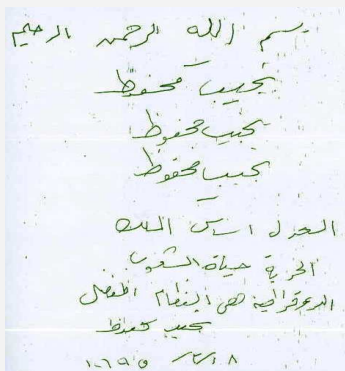 بسم الله الرحمن الرحيم
نجيب محفوظ
نجيب محفوظ
نجيب محفوظ
العدل اساس الملك
الحرية حياة الشعوب
الديمقراطية هى النظام الافضل
نجيب محفوظ